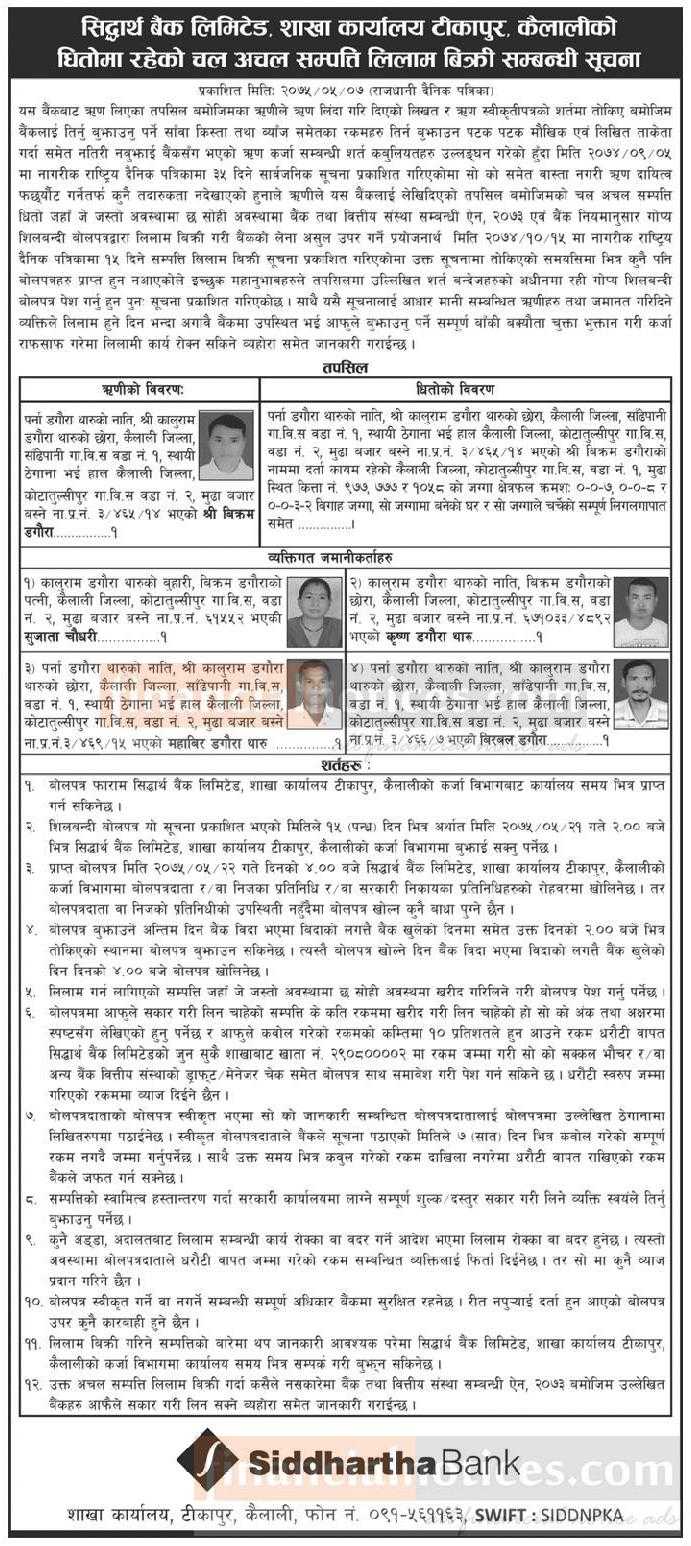 सिद्धार्थ बैंक लिमिटेड, शाखा कार्यालय टीकापुर, कैलालीको
धितोमा रहेको चल अचल सम्पति लिलाम बिक्री सम्बन्धी सूचना
प्रकाशित मितिः २०७५/०५/०७ (राजधानी दैनिक पत्रिका)
यस बैंकबाट ऋण लिएका तपसिल बमोजिमका ऋणीले ऋण लिंदा गरि दिएको लिखत र ऋण स्वीकृतीपत्रको शर्तमा तोकिए बमोजिम
बैंकलाई तिर्नु बुझाउनु पर्ने सांवा किस्ता तथा व्याँज समेतका रकमहरु तिर्न बुझाउन पटक पटक मौखिक एवं लिखित ताकेता
गर्दा समेत नतिरी नबुझाई बैंकसँग भएको ऋण कर्जा सम्बन्धी शर्त कबुलियतहरु उल्लङ्घन गरेको हुँदा मिति २०७४/०९/०५
मा नागरीक राष्ट्रिय दैनिक पत्रिकामा ३५ दिने सार्वजनिक सूचना प्रकाशित गरिएकोमा सो को समेत वास्ता नगरी ऋण दायित्व
फछर्यौट गर्नेतर्फ कुनै तदारुकता नदेखाएको हुनाले ऋणीले यस बैंकलाई लेखिदिएको तपसिल बमोजिमको चल अचल सम्पत्ति
धितो जहाँ जे जस्तो अवस्थामा छ सोही अवस्थामा बैंक तथा वित्तीय संस्था सम्बन्धी ऐन, २०७३ एवं बैंक नियमानुसार गोप्य
शिलबन्दी बोलपत्रद्वारा लिलाम बिक्री गरी बैंकको लेना असुल उपर गर्ने प्रयोजनार्थ मिति २०७४/१०/१५ मा नागरीक राष्ट्रिय
दैनिक पत्रिकामा १५ दिने सम्पत्ति लिलाम बिक्री सूचना प्रकाशित गरिएकोमा उक्त सूचनामा तोकिएको समयसिमा भित्र कुनै पनि
बोलपत्रहरु प्राप्त हुन नआएकोले इच्छुक महानुभाबहरुले तपसिलमा उल्लिखित शर्त बन्देजहरुको अधीनमा रही गोप्य शिलबन्दी
बोलपत्र पेश गर्नु हुन पुनः सूचना प्रकाशित गरिएकोछ । साथै यसै सूचनालाई आधार मानी सम्बन्धित ऋणीहरु तथा जमानत गरिदिने
व्यक्तिले लिलाम हुने दिन भन्दा अगावै बैंकमा उपस्थित भई आफुले बुझाउनु पर्ने सम्पूर्ण बाँकी बक्यौता चुक्ता भुक्तान गरी कर्जा
राफसाफ गरेमा लिलामी कार्य रोक्न सकिने व्यहोरा समेत जानकारी गराईन्छ ।
तपसिल
ऋणीको विवरणः
पर्ना डगौरा थारुको नाति, श्री कालुराम
डगौरा थारुको छोरा, कैलाली जिल्ला,
साँढेपानी गा.वि.स वडा नं. १, स्थायी
ठेगाना भई हाल कैलाली जिल्ला,
कोटातुल्सीपुर गा.वि.स वडा नं. २, मुढा बजार
बस्ने ना.प्र.नं. ३/४६५/१४ भएको श्री बिक्रम
डगौरा...............१
धितोको विवरण
पर्ना डगौरा थारुको नाति, श्री कालुराम डगौरा थारुको छोरा, कैलाली जिल्ला, साँढेपानी
गा.वि.स वडा नं. १, स्थायी ठेगाना भई हाल कैलाली जिल्ला, कोटातुल्सीपुर गा.वि.स,
वडा नं. २, मुढा बजार बस्ने ना.प्र.नं. ३/४६५/१४ भएको श्री बिक्रम डगौराको
नाममा दर्ता कायम रहेको कैलाली जिल्ला, कोटातुल्सीपुर गा.वि.स, वडा नं. १, मुढा
स्थित कित्ता नं. ९७७, ७७७ र १०५८ को जग्गा क्षेत्रफल क्रमशः ०-०-७, ०-०-८ र
०-०-३-२ विगाह जग्गा, सो जग्गामा बनेको घर र सो जग्गाले चर्चेको सम्पूर्ण लिगलगापात
समेत ..............।
व्यक्तिगत जमानीकर्ताहरु
१) कालुराम डगौरा थारुको बुहारी, बिक्रम डगौराको
पत्नी, कैलाली जिल्ला, कोटातुल्सीपुर गा.वि.स, वडा
नं. २, मुढा बजार बस्ने ना.प्र.नं. ६१५५२ भएकी
सुजाता चौधरी..............१
२) कालुराम डगौरा थारुको नाति, बिक्रम डगौराको
छोरा, कैलाली जिल्ला, कोटातुल्सीपुर गा.वि.स, वडा
नं. २, मुढा बजार बस्ने ना.प्र.नं. ६७१०३३/४८९२
भएको कृष्ण डगौरा थारु..............१
३) पर्ना डगौरा थारुको नाति, श्री कालुराम डगौरा
थारुको छोरा, कैलाली जिल्ला, साँढेपानी गा.वि.स,
वडा नं. १, स्थायी ठेगाना भई हाल कैलाली जिल्ला,
कोटातुल्सीपुर गा.वि.स, वडा नं. २, मुढा बजार बस्ने
ना.प्र.नं.३/४६९/१५ भएको महाबिर डगौरा थारु ..............१
४) पर्ना डगौरा थारुको नाति, श्री कालुराम डगौरा
थारुको छोरा, कैलाली जिल्ला, साँढेपानी गा.वि.स,
वडा नं. १, स्थायी ठेगाना भई हाल कैलाली जिल्ला,
कोटातुल्सीपुर गा.वि.स, वडा नं. २, मुढा बजार बस्ने
ना.प्र.नं. ३/४६६/७ भएको बिरबल डगौरा............१
शर्तहरू :
१. बोलपत्र फाराम सिद्धार्थ बैंक लिमिटेड, शाखा कार्यालय टीकापुर, कैलालीको कर्जा विभागबाट कार्यालय समय भित्र प्राप्त
गर्न सकिनेछ ।
२. शिलबन्दी बोलपत्र यो सूचना प्रकाशित भएको मितिले १५ (पन्ध्र) दिन भित्र अर्थात मिति २०७५/०५/२१ गते २.०० बजे
भित्र सिद्धार्थ बैंक लिमिटेड, शाखा कार्यालय टीकापुर, कैलालीको कर्जा विभागमा बुझाई सक्नु पर्नेछ ।
३. प्राप्त बोलपत्र मिति २०७५/०५/२२ गते दिनको ४.०० बजे सिद्धार्थ बैंक लिमिटेड, शाखा कार्यालय टीकापुर, कैलालीको
कर्जा विभागमा बोलपत्रदाता र/वा निजका प्रतिनिधि र/वा सरकारी निकायका प्रतिनिधिहरुको रोहवरमा खोलिनेछ । तर
बोलपत्रदाता वा निजको प्रतिनिधीको उपस्थिती नहुँदैमा बोलपत्र खोल्न कुनै बाधा पुग्ने छैन ।
४. बोलपत्र बुझाउने अन्तिम दिन बैंक विदा भएमा बिदाको लगत्तै बैंक खुलेको दिनमा समेत उक्त दिनको २.०० बजे भित्र
तोकिएको स्थानमा बोलपत्र बुझाउन सकिनेछ । त्यस्तै बोलपत्र खोल्ने दिन बैंक विदा भएमा विदाको लगत्तै बैंक खुलेका
दिन दिनको ४.०० बजे बोलपत्र खोलिनेछ ।
५. लिलाम गर्न लागिएको सम्पति जहाँ जे जस्तो अवस्थामा छ सोही अवस्थमा खरीद गरिलिने गरी बोलपत्र पेश गर्नु पर्नेछ ।
६. बोलपत्रमा आफुले सकार गरी लिन चाहेको सम्पत्ति के कति रकममा खरीद गरी लिन चाहेको हो सो को अंक तथा अक्षरमा
स्पष्टसँग लेखिएको हुनु पर्नेछ र आफुले कवोल गरेको रकमको कम्तिमा १० प्रतिशतले हुन आउने रकम धरौटी वापत
सिद्धार्थ बैंक लिमिटेडको जुन सुकै शाखाबाट खाता नं. २९०८००००२ मा रकम जम्मा गरी सो को सक्कल भौचर र/वा
अन्य बैंक वित्तीय संस्थाको ड्राफ्ट/मेनेजर चेक समेत बोलपत्र साथ समावेश गरी पेश गर्न सकिने छ । धरौटी स्वरुप जम्मा
गरिएको रकममा व्याज दिईने छैन ।
७. बोलपत्रदाताको बोलपत्र स्वीकृत भएमा सो को जानकारी सम्बन्धित बोलपत्रदातालाई बोलपत्रमा उल्लेखित ठेगानामा
लिखितरुपमा पठाईनेछ । स्वीकृत बोलपत्रदाताले बैंकले सूचना पठाएको मितिले ७ (सात) दिन भित्र कवोल गरेको सम्पूर्ण
रकम नगदै जम्मा गर्नुपर्नेछ । साथै उक्त समय भित्र कबुल गरेको रकम दाखिला नगरेमा धरौटी वापत राखिएको रकम
बैंकले जफत गर्न सक्नेछ ।
८. सम्पत्तिको स्वामित्व हस्तान्तरण गर्दा सरकारी कार्यालयमा लाग्ने सम्पूर्ण शुल्क/दस्तुर सकार गरी लिने व्यक्ति स्वयंले तिर्नु
बुझाउनु पर्नेछ ।
९. कुनै अड्डा, अदालतबाट लिलाम सम्बन्धी कार्य रोक्का वा वदर गर्ने आदेश भएमा लिलाम रोक्का वा बदर हुनेछ । त्यस्तो
अवस्थामा बोलपत्रदाताले धरौटी वापत जम्मा गरेको रकम सम्बन्धित व्यक्तिलाई फिर्ता दिईनेछ । तर सो मा कुनै व्याज
प्रदान गरिने छैन ।
१०. बोलपत्र स्वीकृत गर्ने वा नगर्ने सम्बन्धी सम्पूर्ण अधिकार बैंकमा सुरक्षित रहनेछ । रीत नपुर्‍याई दर्ता हुन आएको बोलपत्र
उपर कुनै कारबाही हुने छैन ।
११. लिलाम बिक्री गरिने सम्पत्तिको बारेमा थप जानकारी आवश्यक परेमा सिद्धार्थ बैंक लिमिटेड, शाखा कार्यालय टीकापुर,
कैलालीको कर्जा विभागमा कार्यालय समय भित्र सम्पर्क गरी बुझ्न सकिनेछ ।
१२. उक्त अचल सम्पति लिलाम विक्री गर्दा कसैले नसकारेमा बैंक तथा वित्तीय संस्था सम्बन्धी ऐन, २०७३ बमोजिम उल्लेखित
बैंकहरु आफैले सकार गरी लिन सक्ने व्यहोरा समेत जानकारी गराईन्छ ।
Siddhartha Bank
financialnotices.com
शाखा कार्यालय, टीकापुर, कैलाली, फोन नं. ०९१-५६११६३, SWIFT : SIDDNPKA